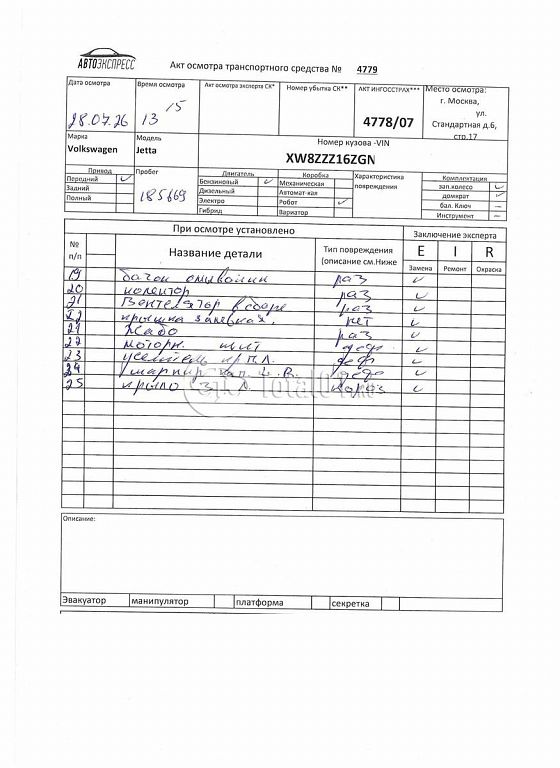 АВТОЭКСПРЕСС
Акт осмотра транспортного средства № 4779
Дата осмотра
28.07.26
Время осмотра
13 15
Акт осмотра эксперта СК*
Номер убытка СК**
АКТ ИНГОССТРАХ***
4778/07
Место осмотра:
г. Москва,
ул.
Стандартная д.6,
стр.17
Марка
Volkswagen
Модель
Jetta
Номер кузова -VIN
XW8ZZZ16ZGN
Привод
Передний ✓
Задний
Полный
Пробег
185669
Двигатель
Бензиновый ✓
Дизельный
Электро
Гибрид
Коробка
Механическая
Автомат-кая
Робот ✓
Вариатор
Характеристика
повреждения
Комплектация
зап.колесо ✓
домкрат ✓
бал. Ключ —
Инструмент —
При осмотре установлено
Заключение эксперта
№
п/п
Название детали
Тип повреждения
(описание см.Ниже
E I R
Замена Ремонт Окраска
19 бачок омывайки раз ✓
20 колектор раз ✓
21 Вентелятор в сборе раз ✓
22 крышка нет ✓
21 Жабо раз ✓
22 моторн. щит деф ✓
23 уселитель кр п.л. деф ✓
24 шарнир кап. L. R. деф ✓
25 крыло з л ✓
Total01.ru
Описание:
Эвакуатор
манипулятор
платформа
секретка